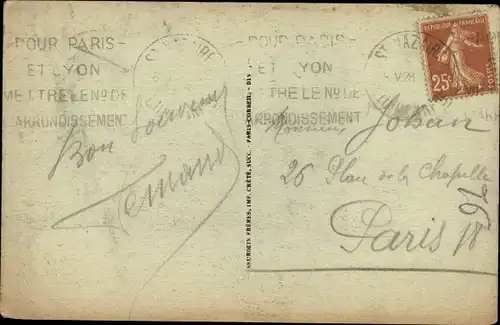 POUR PARIS -
ET LYON
METTRE LE No DE
L'ARRONDISSEMENT
ST NAZAIRE
Bon Souvenir
POUR PARIS -
ET LYON
METTRE LE No DE
L'ARRONDISSEMENT
ST NAZAIRE
V28
REPUBLIQUE FRANÇAISE
25c
POSTES
BOURGEOIS FRÈRES, IMP. CRÉTÉ, SUCC. - PARIS-CORBEIL - DIV
Monsieur Johan
26 Place de la Chapelle
Paris 18